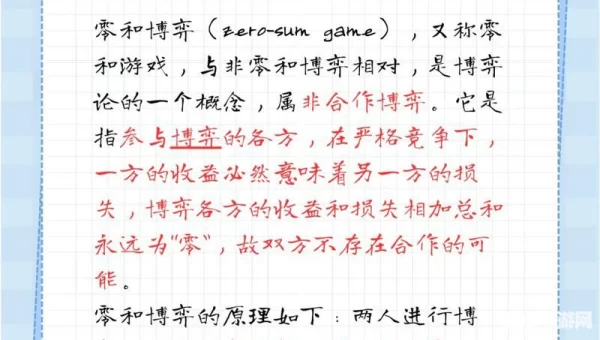 零和博弈（zero-sum game），又称零
和游戏，与非零和博弈相对，是博弈
论的一个概念，属非合作博弈。它是
指参与博弈的各方，在严格竞争下，
一方的收益必然意味着另一方的损
失，博弈各方的收益和损失相加总和
永远为“零”，故双方不存在合作的可
能。
零和博弈的原理如下：两人进行博